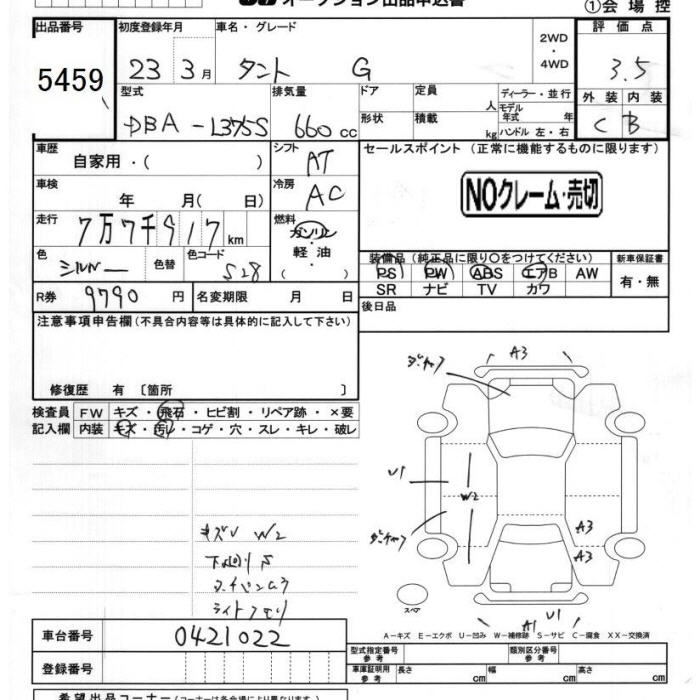 オークション出品申込書
①会場控
出品番号 初度登録年月 車名・グレード 2WD ・ 4WD 評価点
5459 23 3月 タント G 3.5
型式 排気量 ドア 定員 人 ディーラー・並行 外装 内装
DBA-L375S 660cc 形状 積載 kg モデル年式 年 ハンドル 左・右 C B
車歴 自家用・( ) シフト AT セールスポイント (正常に機能するものに限ります)
車検 年 月( 日) 冷房 AC NOクレーム・売切
走行 7万7千917km 燃料 ガソリン・軽油・( )
色 シルバー 色替 色コード S28
装備品 (純正品に限り○をつけてください) 新車保証書
PS PW ABS エアB AW 有・無
SR ナビ TV カワ
R券 9790円 名変期限 月 日 後日品
注意事項申告欄(不具合内容等は具体的に記入して下さい)
修復歴 有 〔箇所 〕
検査員 FW キズ・飛石・ヒビ割・リペア跡・×要
記入欄 内装 キズ・汚レ・コゲ・穴・スレ・キレ・破レ
A3
U1
W2
A3
A3
キズU W2
下廻りS
ライトクモリ
スペア
A1
U1
A-キズ E-エクボ U-凹み W-補修跡 S-サビ C-腐食 XX-交換済
車台番号 0421022
登録番号
型式指定番号 参考 類別区分番号 参考
車庫証明用 参考 長さ cm 幅 cm 高さ cm
希望出品コーナー(コーナーは各会場により異なります)